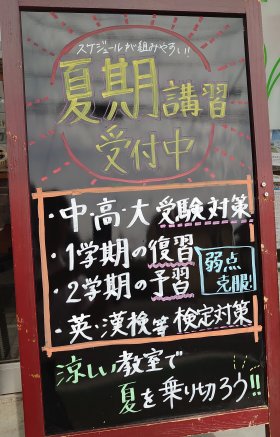 スケジュールが組みやすい!!
夏期講習
受付中
・中・高・大 受験対策
・1学期の復習
・2学期の予習
弱点
克服!
・英・漢検等 検定対策
涼しい教室で
夏を乗り切ろう!!